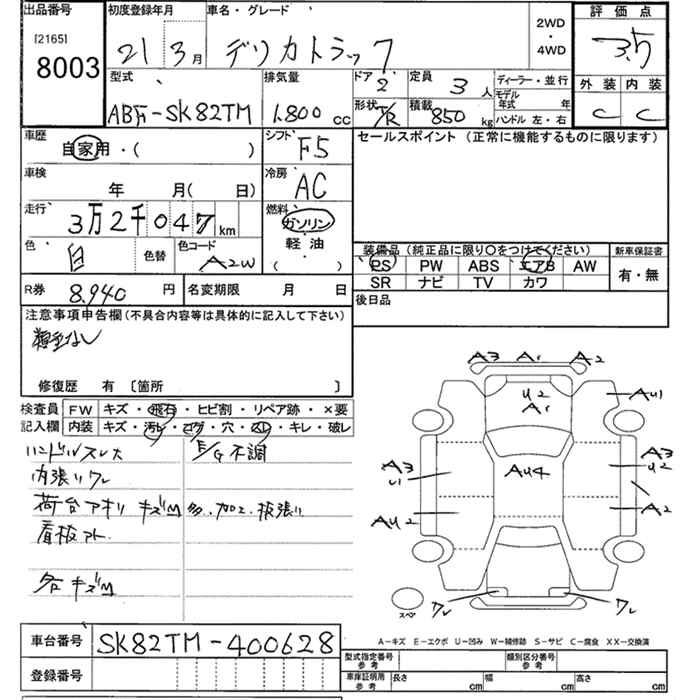 出品番号
[2165]
8003
初度登録年月
21 3月
車名・グレード
デリカトラック
2WD
・
4WD
評価点
3.5
外装 内装
C C
型式
ABF-SK82TM
排気量
1.800 cc
ドア 2
定員 3人
形状 T/R
積載 850 kg
ディーラー・並行
モデル年式 年
ハンドル 左・右
車歴
自家用・( )
シフト F5
セールスポイント (正常に機能するものに限ります)
車検
年 月( 日)
冷房 AC
走行
3万2千047 km
燃料
ガソリン
軽油
( )
色 白
色替
色コード A2W
装備品 (純正品に限り○をつけてください)
新車保証書
PS PW ABS エアB AW
SR ナビ TV カワ
有・無
R券 8.940 円
名変期限 月 日
後日品
注意事項申告欄(不具合内容等は具体的に記入して下さい)
修復歴 有 〔箇所 〕
検査員記入欄
FW キズ・飛石・ヒビ割・リペア跡・×要
内装 キズ・汚レ・コゲ・穴・スレ・キレ・破レ
ハンドルスレ大
E/G不調
内張りワレ
荷台アオリ キズM 多、加工、板張り
看板アト
各 キズM
A3 A1 A2
U2
A1
AU1
AU4
A3
U1
A3
U2
AU2
A2
ワレ
ワレ
スペア
A-キズ E-エクボ U-凹み W-補修跡 S-サビ C-腐食 XX-交換済
車台番号 SK82TM-400628
登録番号
型式指定番号 参考
類別区分番号 参考
車庫証明用 参考
長さ cm
幅 cm
高さ cm